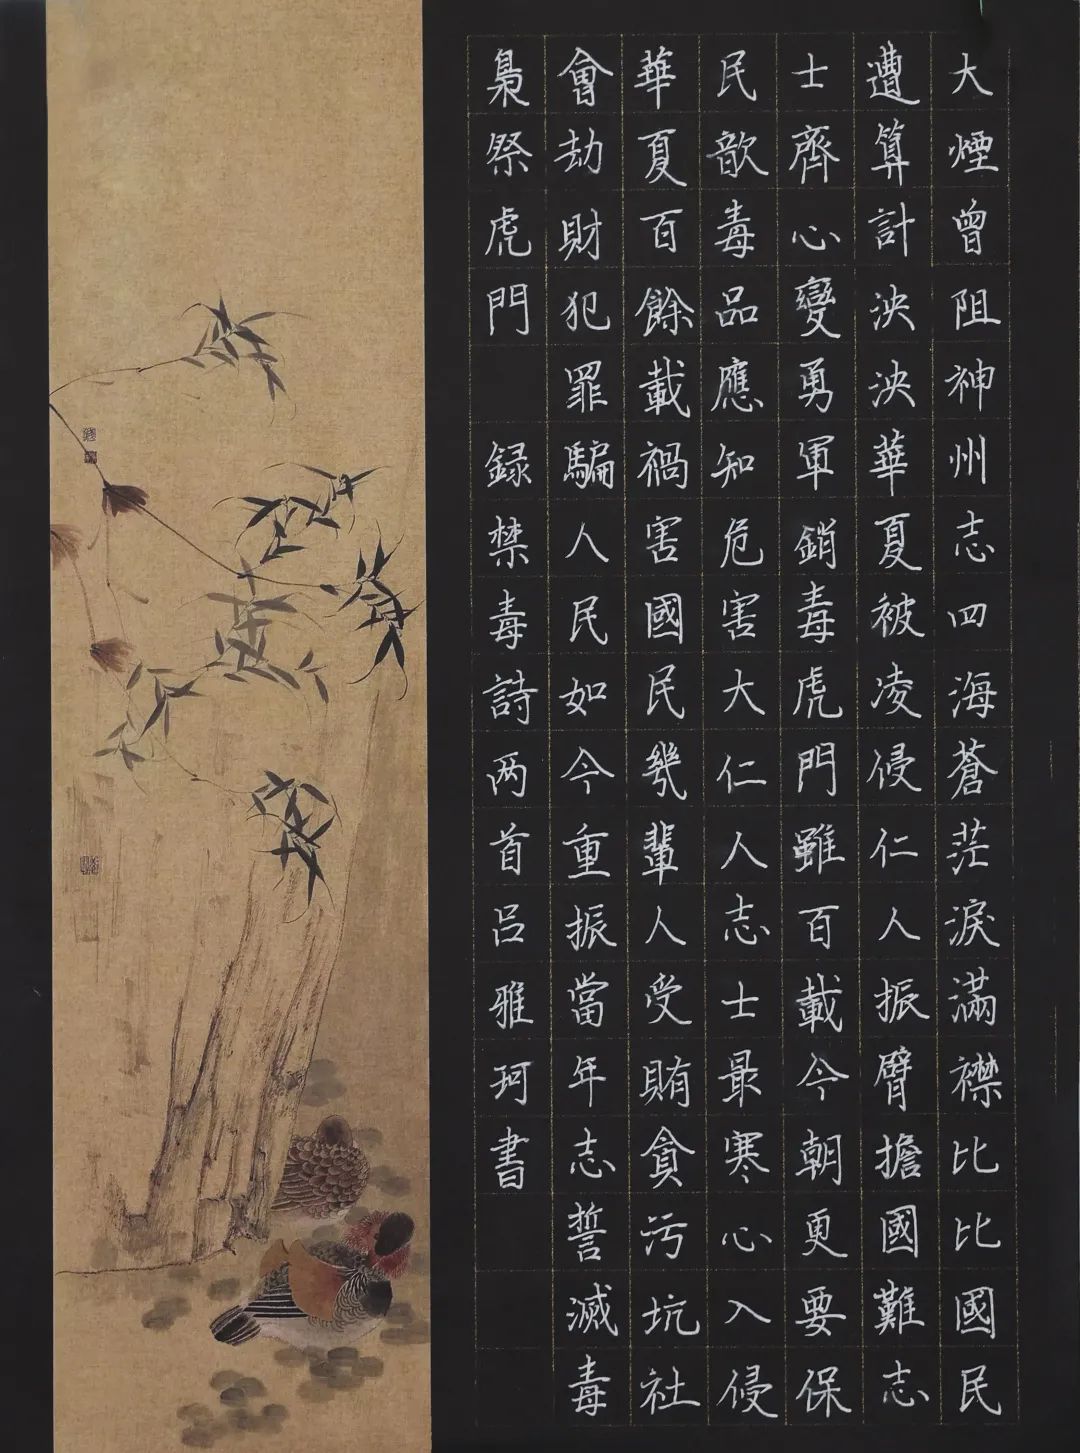 大煙曾阻神州志四海蒼茫淚滿襟比比國民
遭算計泱泱華夏被凌侵仁人振臂擔國難志
士齊心變勇軍銷毒虎門雖百載今朝更要保
民歆毒品應知危害大仁人志士最寒心入侵
華夏百餘載禍害國民幾輩人受賄貪污坑社
會劫財犯罪騙人民如今重振當年志誓滅毒
梟祭虎門 録禁毒詩两首吕雅珂書